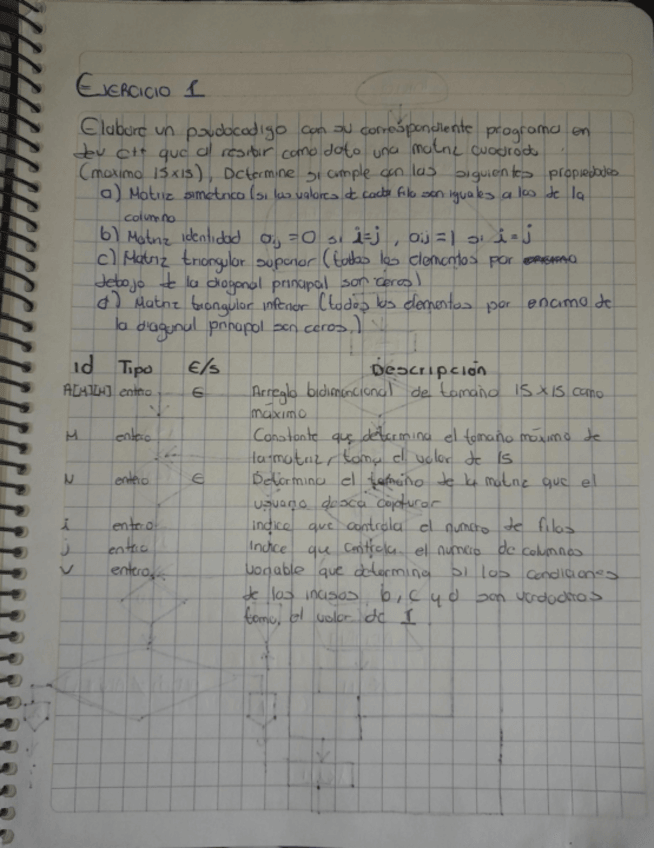 EJERCICIO 1
Elabore un pseudocodigo con su correspondiente programa en
dev C++ que al recibir como dato una matriz cuadrada
(maximo 15x15), Determine si cumple con las siguientes propiedades
a) Matriz simetrica (si los valores de cada fila son iguales a los de la
columna
b) Matriz identidad aij =0 si i=j, aij=1 si i=j
c) Matriz triangular superior (todos los elementos por
debajo de la diagonal principal son ceros)
d) Matriz triangular inferior (todos los elementos por encima de
la diagonal principal son ceros.)
id Tipo E/S Descripción
A[M][M] entero E Arreglo bidimencional de tamaño 15x15 como
máximo
M entero Constante que determina el tamaño máximo de
la matriz, toma el valor de 15
N entero E Determina el tamaño de la matriz que el
usuario desea capturar
i entero indice que controla el numero de filas
j entero Indice que controla el numero de columnas
V entero Variable que determina si las condiciones
de los incisos b, c y d son verdaderas
toma, el valor de 1